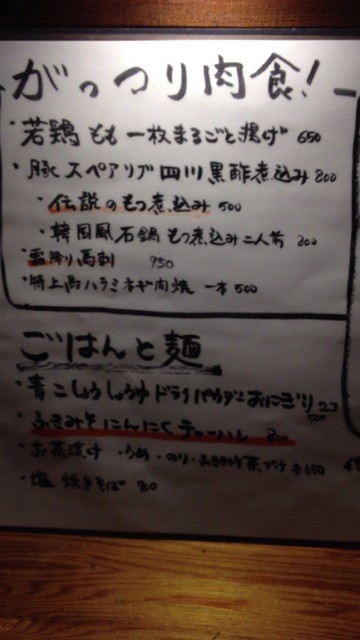 がっつり肉食!
・若鶏もも一枚まるごと揚げ 650
・豚スペアリブ四川黒酢煮込み 800
・伝説のもつ煮込み 500
・韓国風石鍋もつ煮込み二人前
馬刺 950
・特上馬ハラミネギ肉焼 一本 500
ごはんと麺
・青こしょうしょうゆドラゴンパウダーおにぎり 2コ
・ふきみそにんにくチャーハン 800
・お茶漬け ・うめ・のり・ふきみそ茶づけ 各650
・塩焼きそば